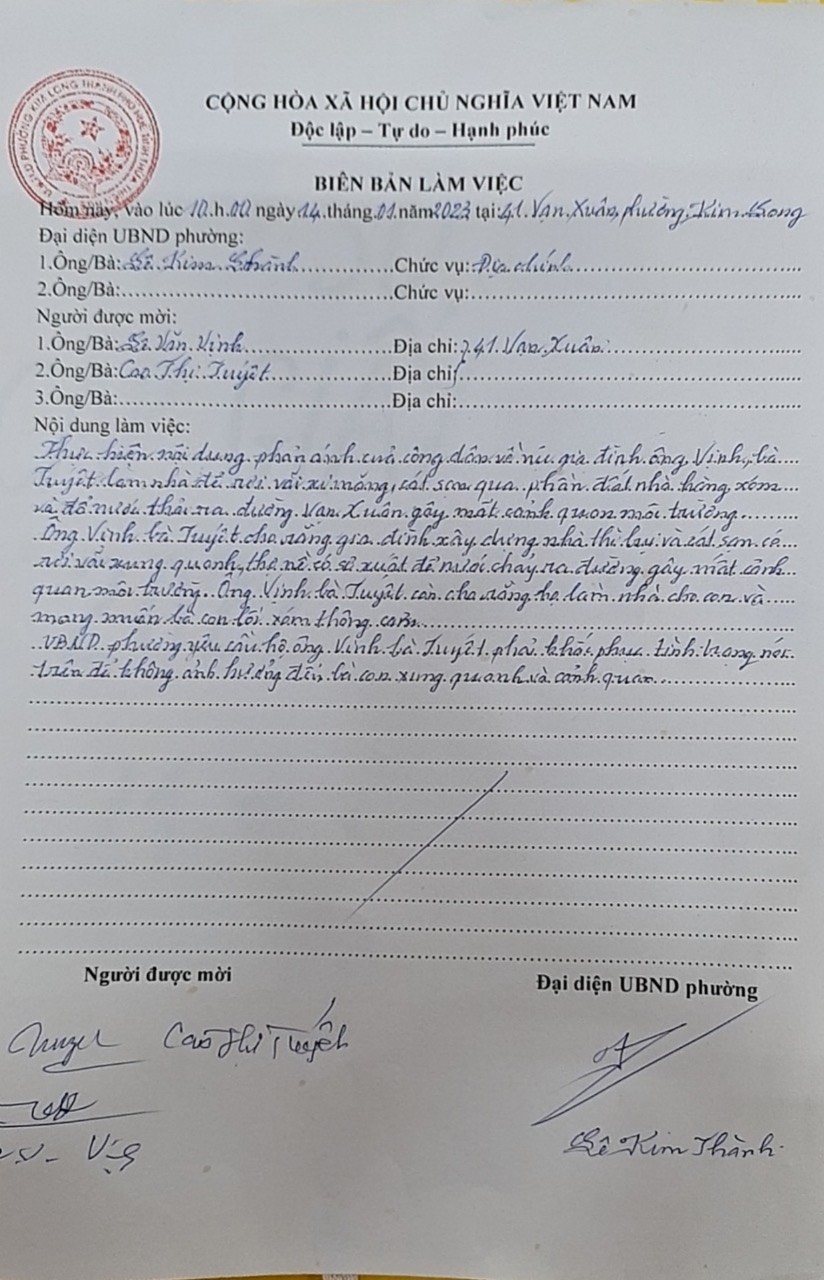 CỘNG HÒA XÃ HỘI CHỦ NGHĨA VIỆT NAM
Độc lập – Tự do – Hạnh phúc
BIÊN BẢN LÀM VIỆC
Hôm nay, vào lúc 10.h.00 ngày 14.tháng.01.năm 2023 tại: 41. Vạn Xuân, phường Kim Long
Đại diện UBND phường:
1.Ông/Bà: Lê Kim Thành Chức vụ: Địa chính
2.Ông/Bà: Chức vụ:
Người được mời:
1.Ông/Bà: Lê Văn Vinh Địa chỉ: 41 Vạn Xuân
2.Ông/Bà: Cao Thị Tuyết Địa chỉ
3.Ông/Bà: Địa chỉ:
Nội dung làm việc:
Thực hiện nội dung phản ánh của công dân về gia đình ông Vinh, bà
Tuyết làm nhà để rơi vãi xi măng, cát sạn qua phần đất nhà hàng xóm
và để nước thải ra đường Vạn Xuân gây mất cảnh quan môi trường
Ông Vinh bà Tuyết cho rằng gia đình xây dựng nhà thì và cát sạn có
rơi vãi xung quanh, thợ nề có sơ xuất để nước chảy ra đường gây mất cảnh
quan môi trường. Ông Vinh bà Tuyết còn cho rằng họ làm nhà cho con và
mong muốn bà con lối xóm thông cảm
UBND phường yêu cầu hộ ông Vinh bà Tuyết phải khắc phục tình trạng nói
trên để không ảnh hưởng đến bà con xung quanh và cảnh quan
Người được mời Đại diện UBND phường
Cao Thị Tuyết
Lê Kim Thành